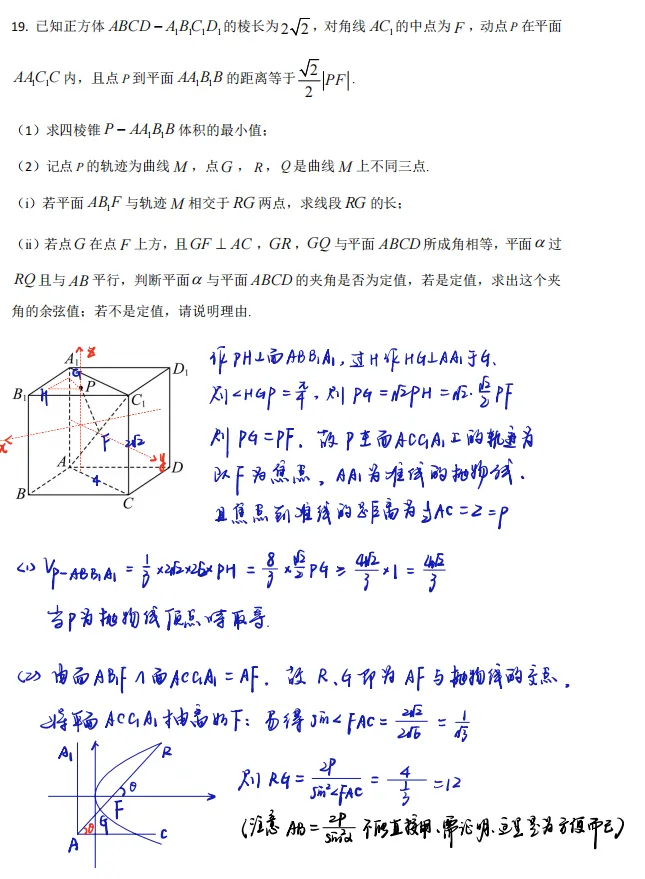 19. 已知正方体 ABCD − A₁B₁C₁D₁的棱长为2√2，对角线 AC₁的中点为 F，动点 P 在平面
AA₁C₁C 内，且点 P 到平面 AA₁B₁B 的距离等于 √2/2 |PF|.
（1）求四棱锥 P − AA₁B₁B 体积的最小值；
（2）记点 P 的轨迹为曲线 M，点 G，R，Q 是曲线 M 上不同三点.
（i）若平面 AB₁F 与轨迹 M 相交于 RG 两点，求线段 RG 的长；
（ii）若点 G 在点 F 上方，且 GF ⊥ AC，GR，GQ 与平面 ABCD 所成角相等，平面 α 过
RQ 且与 AB 平行，判断平面 α 与平面 ABCD 的夹角是否为定值，若是定值，求出这个夹
角的余弦值；若不是定值，请说明理由.
A₁ z
G
D₁
H P
B₁ C₁
F 2√2
x
A y
4 D
B C
作PH⊥面ABB₁A₁, 过H作HG⊥AA₁于G.
则∠HGP = π/4, 则 PG = √2PH = √2·√2/2 PF
则PG = PF. 故P在面ACC₁A₁上的轨迹为
以F为焦点, AA₁为准线的抛物线.
且焦点到准线的距离为½AC = 2 = p
(1) V_{P-ABB₁A₁} = 1/3 × 2√2 × 2√2 × PH = 8/3 × √2/2 PG ≥ 4√2/3 × 1 = 4√2/3
当P为抛物线顶点时取等.
(2) 由面AB₁F ∩ 面ACC₁A₁ = AF. 故 R、G 即为 AF 与抛物线的交点.
将平面ACC₁A₁抽离如下: 易得 sin∠FAC = 2√2/2√6 = 1/√3
则 RG = 2p/sin²∠FAC = 4/(1/3) = 12
(注意 AB = 2p/sin²α 不能直接用、需证明、这里是为方便而已)
A₁ R
θ
F
G
θ
A C